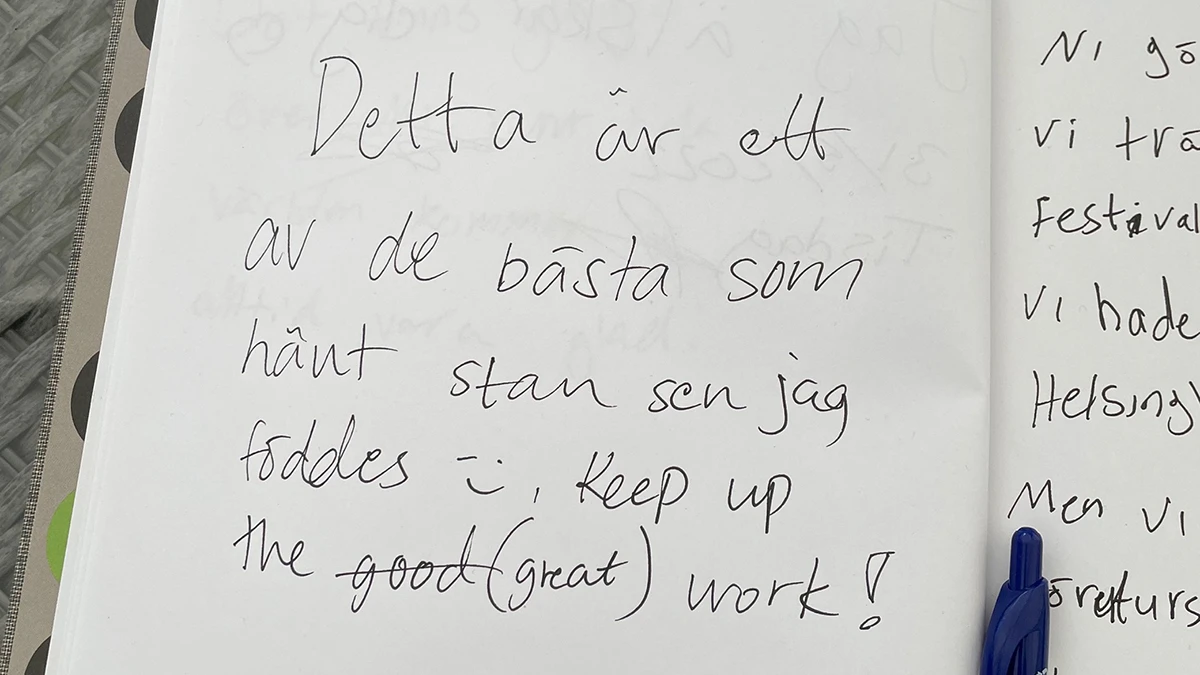 Detta är ett
av de bästa som
hänt stan sen jag
föddes :), Keep up
the good (great) work!
Ni gö
Vi trä
Festival
Vi hade
Helsing
Men vi